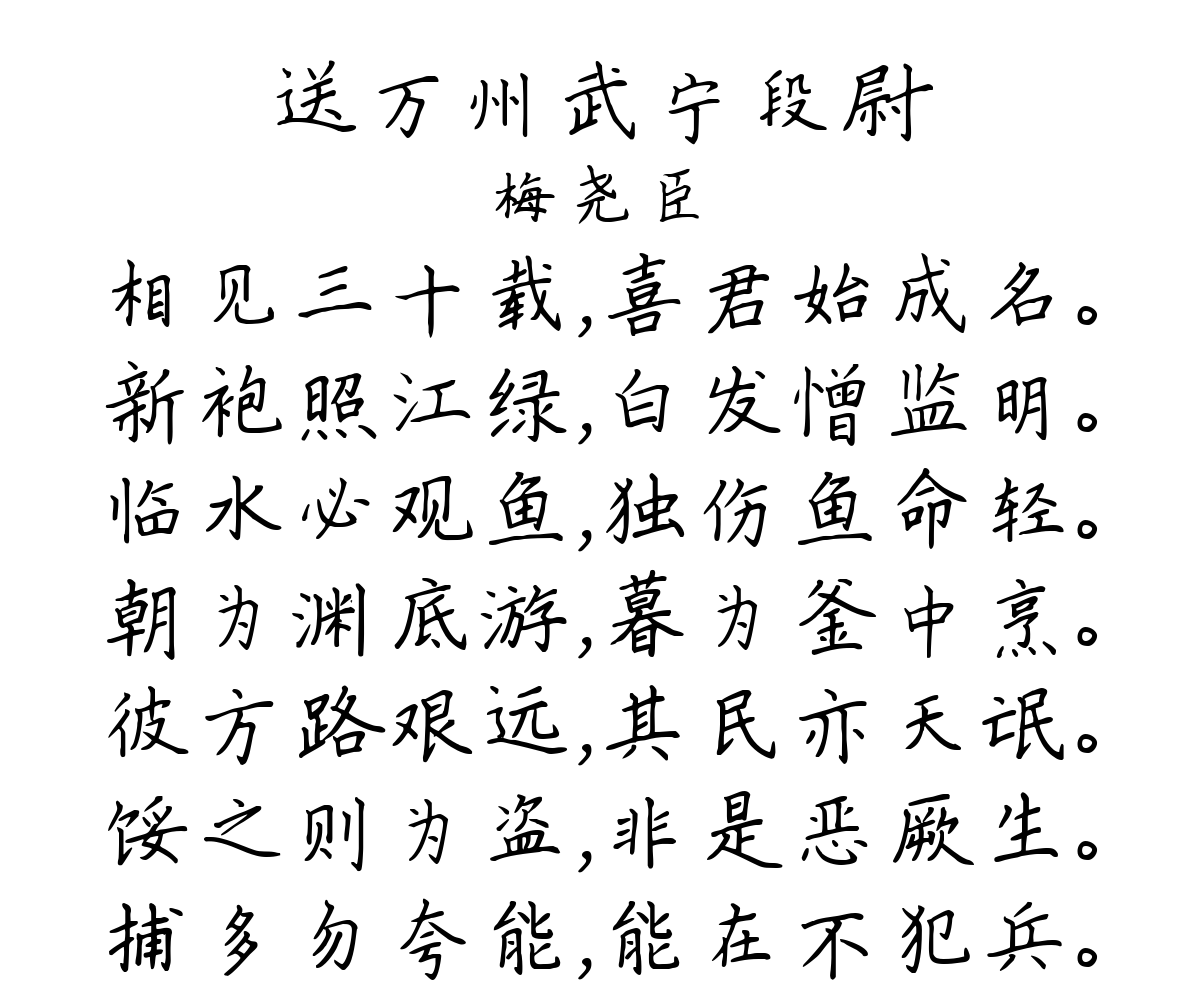 送万州武宁段尉
梅尧臣
相见三十载,喜君始成名。
新袍照江绿,白发憎监明。
临水必观鱼,独伤鱼命轻。
朝为渊底游,暮为釜中烹。
彼方路艰远,其民亦天氓。
馁之则为盗,非是恶厥生。
捕多勿夸能,能在不犯兵。